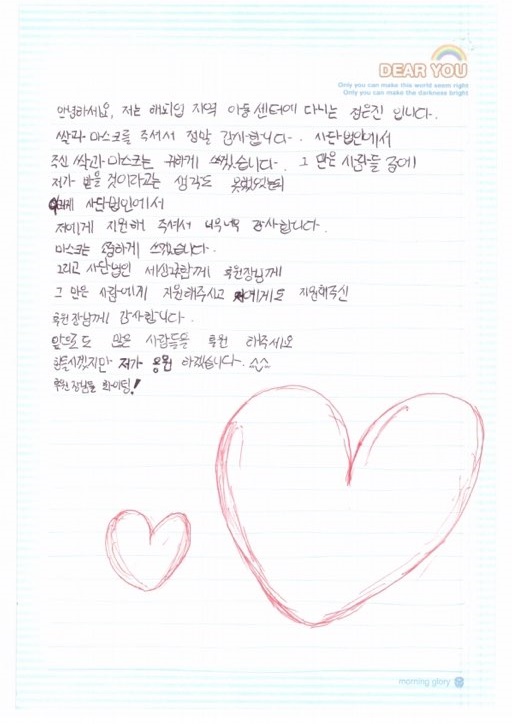 DEAR YOU
Only you can make this world seem right
Only you can make the darkness bright
안녕하세요, 저는 해뜨임 지역 아동센터에 다니는 정은진 입니다.
쌀과 마스크를 주셔서 정말 감사합니다. 사단법인에서
주신 쌀과 마스크는 귀하게 쓰겠습니다. 그 많은 사람들 중에
저가 받을 것이라고는 생각도 못했었는데
이렇게 사단법인에서
저에게 지원해 주셔서 너무너무 감사합니다.
마스크는 소중하게 쓰겠습니다.
그리고 사단법인 후원장님께
그 많은 사람에게 지원해주시고 저에게도 지원해주신
후원장님께 감사합니다.
앞으로도 많은 사람들을 후원 해주세요
힘들시겠지만 저가 응원 하겠습니다. ^^
후원장님들 화이팅!
morning glory